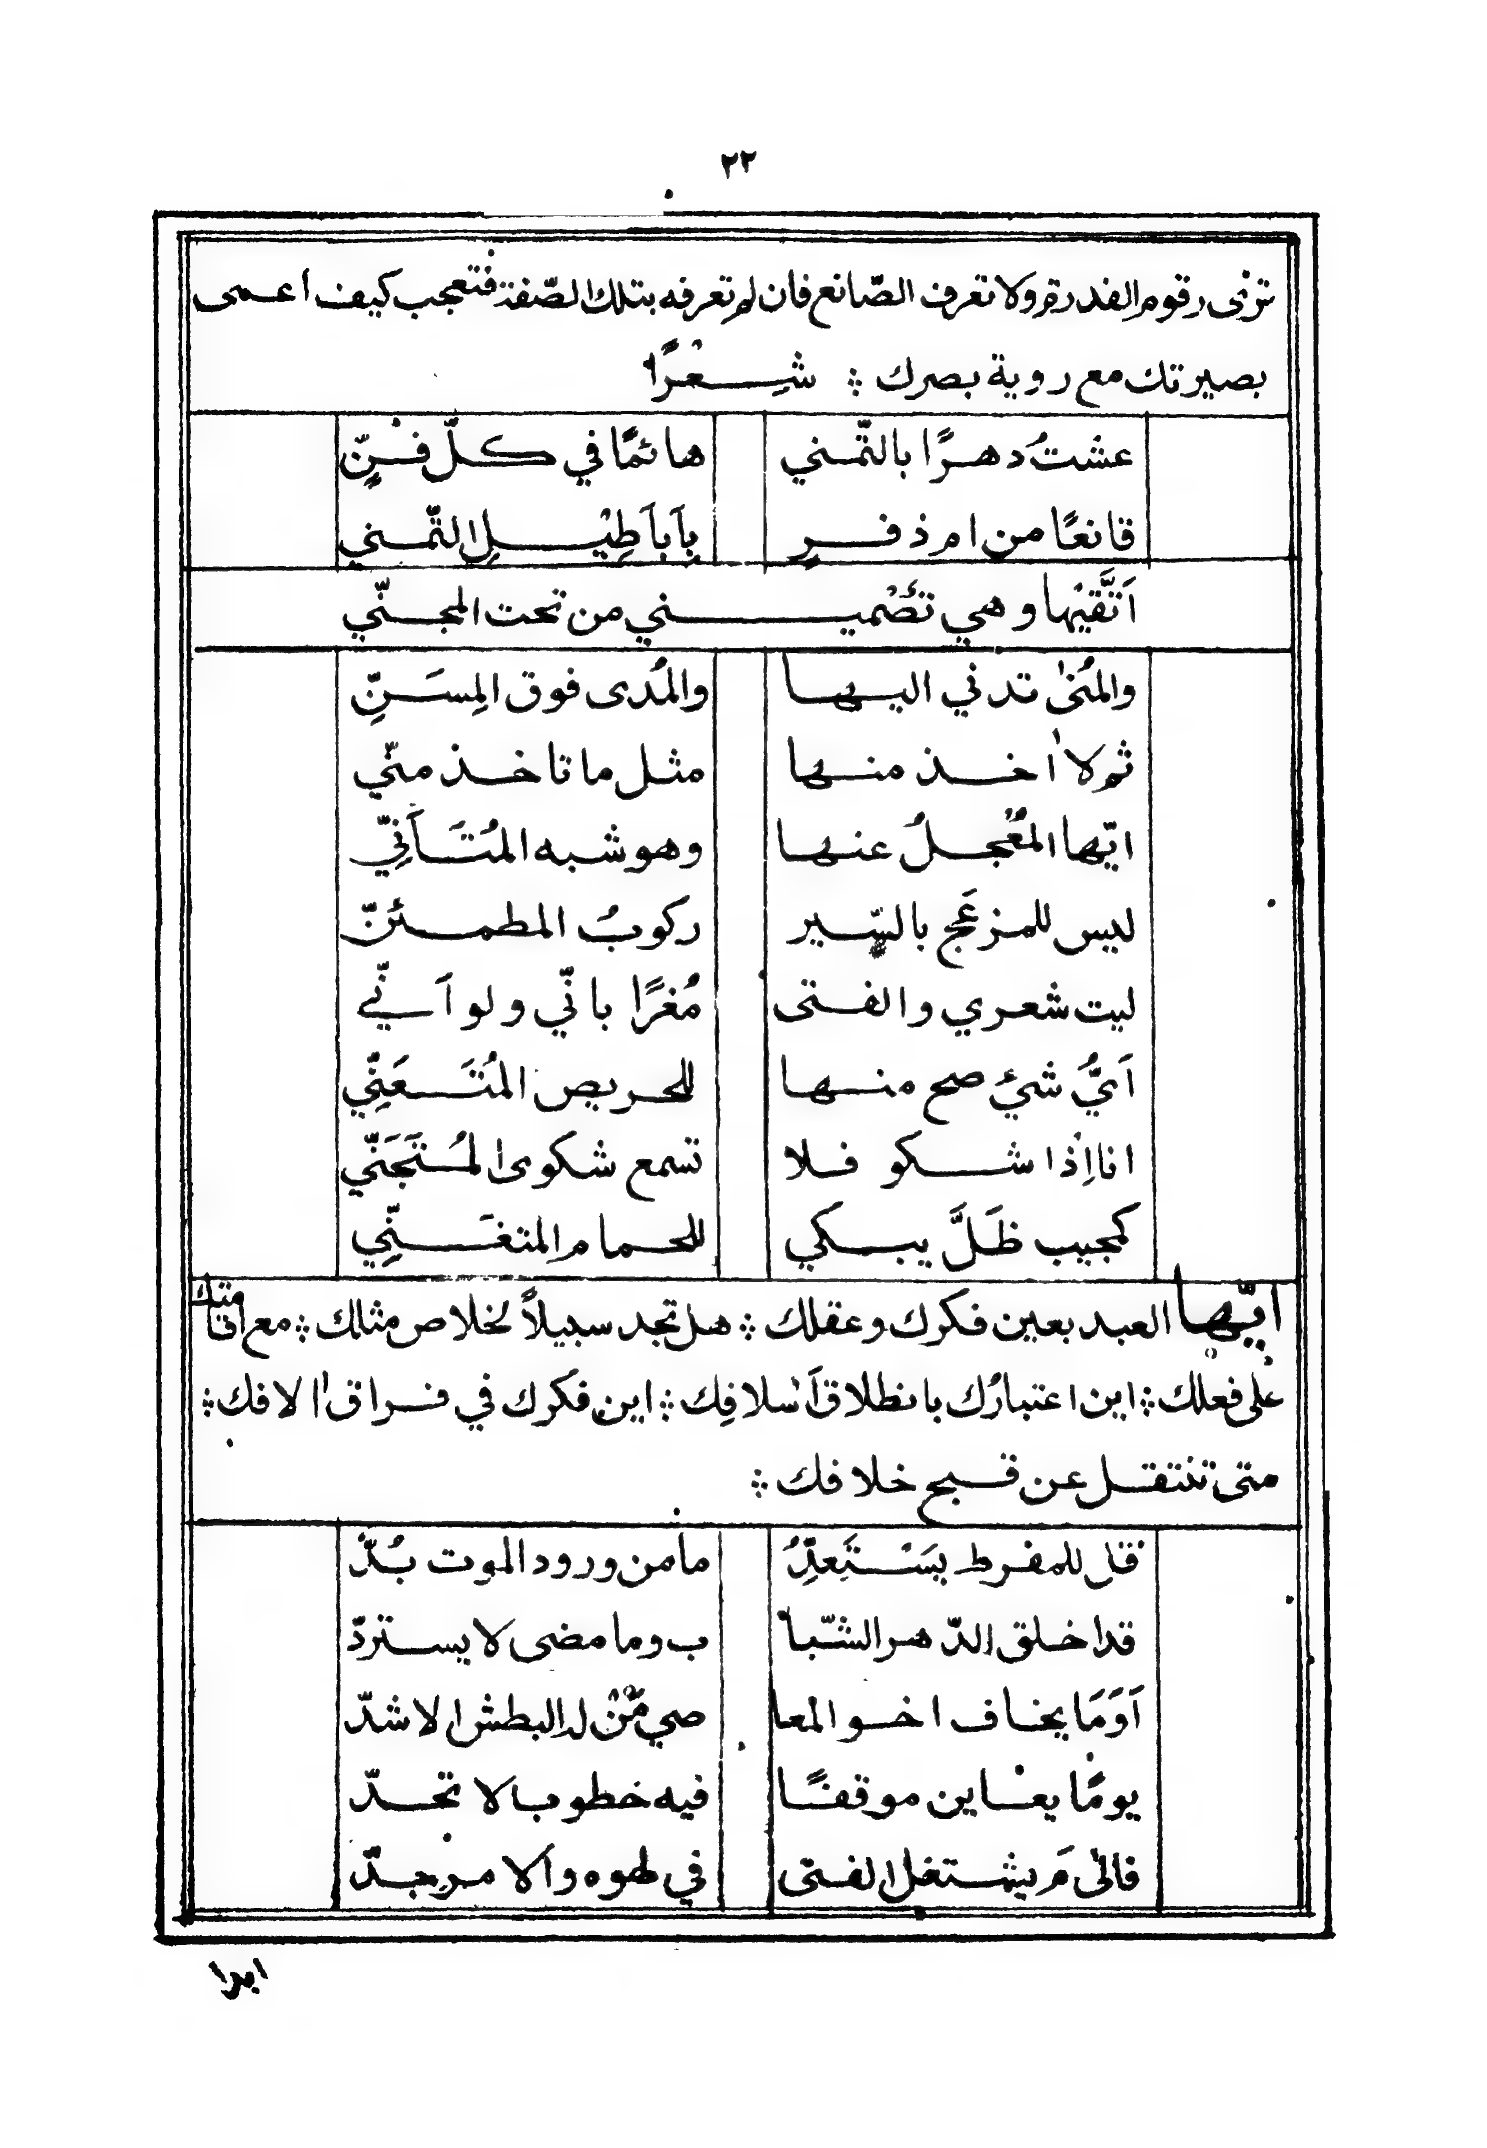 ٢٢
ترى رقوم القدرة ولا تعرف الصّانع فان لم تعرفه بتلك الصّفة فتعجب كيف اعمى
بصيرتك مع روية بصرك ؞ شعْرًا
عشتُ دهرًا بالتّمني هائمًا في كلّ فنٍّ
قانعًا من ام ذفرٍ بِآبآطِيْلِ التّمني
اَتَّقيْها وهي تَصْميني من تحت المجنّي
والمُنىٰ تدني اليها والمُدى فوق المِسَنِّ
ثم لا اٰخذ منها مثل ما تاخذ منّي
ايّها المُعْجلُ عنها وهو شبه المُتَأَنِّي
ليس للمزعَج بالسّير ركوبُ المطمئنّ
ليت شعري والفتى مُغرًا بانّي ولو اَنّي
اَيُّ شيْءٍ صح منها للحريص المُتَعَنِّي
انا اِذا شكو فلا تسمع شكوى المُتَجَنّي
كمجيب ظَلَّ يبكي للحمام المتغَنِّي
ايّها العبد بعين فكرك وعقلك ؞ هل تجد سبيلاً لخلاص مثلك ؞ مع اقامتك
على فعلك ؞ اين اعتبارُك بانطلاق اَسْلافِك ؞ اين فكرك في فراق اٰلافك ؞
متى تنتقل عن قبيح خلافك ؞
قل للمفرط يَسْتَعِدُّ ما من ورود الموت بُدّ
قد اخلق الدّهر الشّبا ب وما مضى لا يستردّ
اَوَمَا يخاف اخو المعا صي مَنْ له البطش الاشدّ
يومًا يعاين موقفًا فيه خطوب لا تحدّ
فالىٰ مَ يشتغل الفتى في لهوه والامر جدّ
ابدا